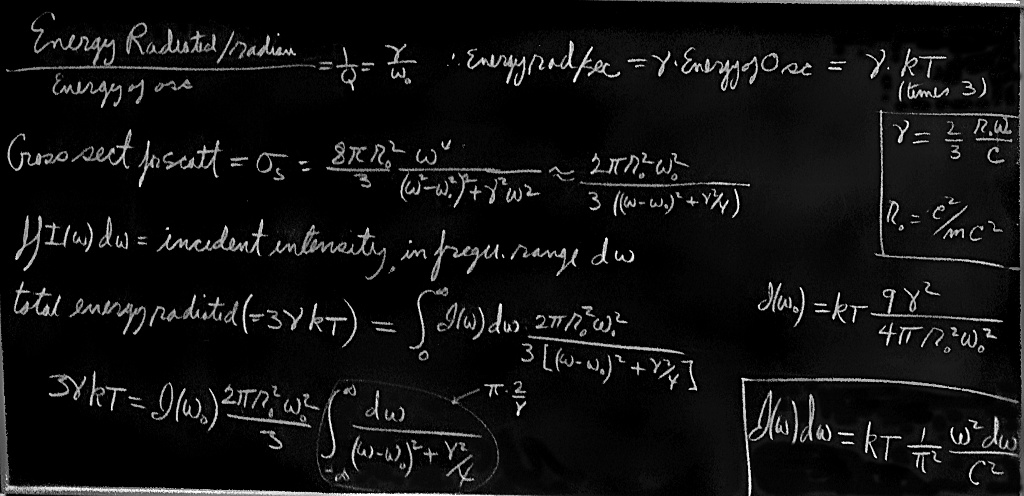 Energy Radiated/radian / Energy of osc = 1/Q = γ/ω₀ ∴ Energy rad/sec = γ·Energy of Osc = γ·kT
(times 3)
γ = 2/3 r₀ω₀²/c
r₀ = e²/mc²
Cross sect for scatt = σₛ = 8πr₀²/3 ω⁴/((ω²-ω₀²)²+γ²ω²) ≈ 2πr₀²ω₀²/3((ω-ω₀)²+γ²/4)
If I(ω)dω = incident intensity, in frequ. range dω
total energy radiated (=3γkT) = ∫₀^∞ I(ω)dω 2πr₀²ω₀²/3[(ω-ω₀)²+γ²/4]
I(ω₀) = kT 9γ²/4πr₀²ω₀²
3γkT = I(ω₀) 2πr₀²ω₀²/3 ∫₋∞^∞ dω/(ω-ω₀)²+γ²/4
π·2/γ
I(ω)dω = kT 1/π² ω²dω/c²